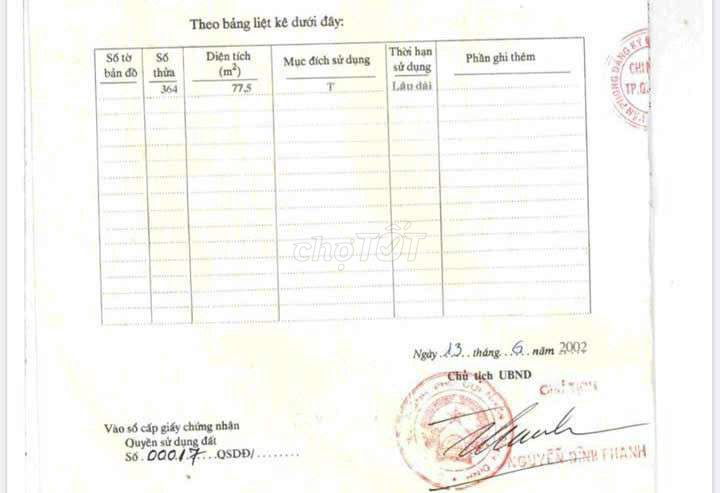 Theo bảng liệt kê dưới đây:
Số tờ bản đồ | Số thửa | Diện tích (m²) | Mục đích sử dụng | Thời hạn sử dụng | Phần ghi thêm
364 | 77,5 | T | Lâu dài
VĂN PHÒNG ĐĂNG KÝ
CHI
TP.Q
chợTỐT
Ngày 13 tháng 6 năm 2002
Chủ tịch UBND
CHỦ TỊCH
Vào sổ cấp giấy chứng nhận
Quyền sử dụng đất
Số 00017 QSDĐ/
NGUYỄN ĐÌNH THANH